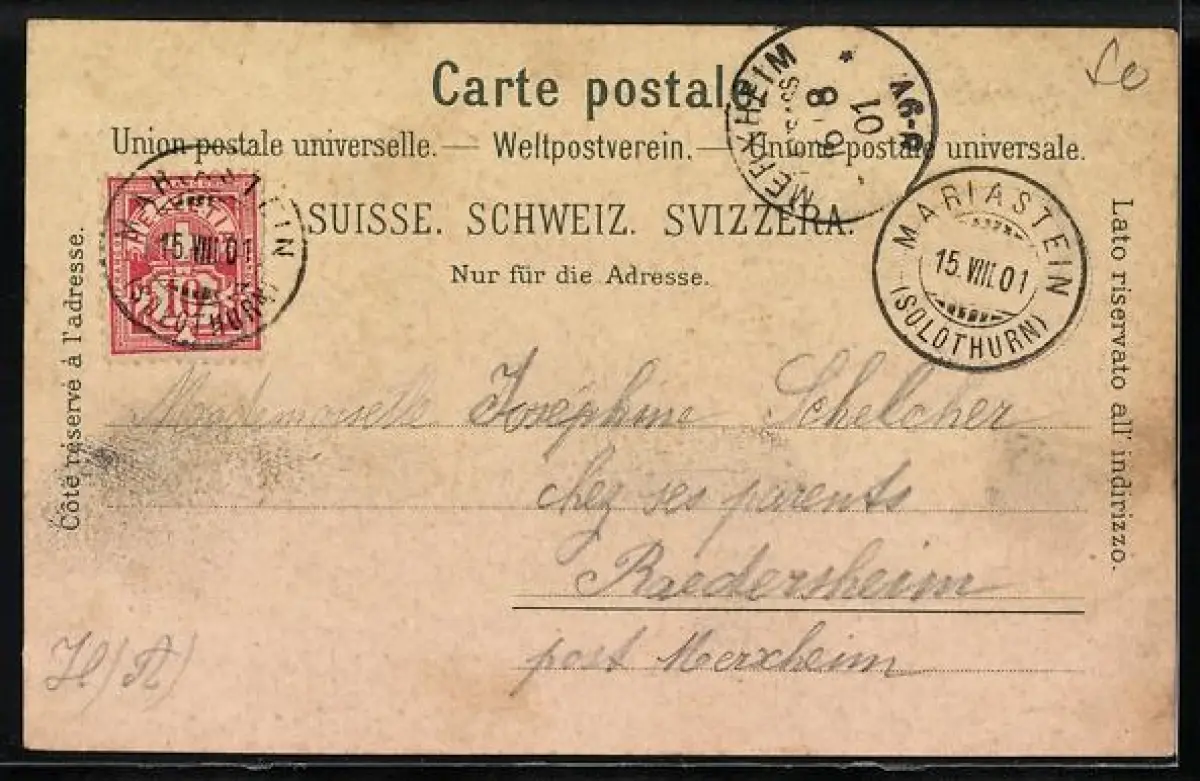 Carte postale
Union postale universelle. — Weltpostverein. — Unione postale universale.
SUISSE. SCHWEIZ. SVIZZERA.
Nur für die Adresse.
Côté réservé à l'adresse.
Lato riservato all' indirizzo.
HELVETIA
10
MARIASTEIN
15.VIII.01
(SOLOTHURN)
MERXHEIM
16 8
01
MARIASTEIN
15.VIII.01
(SOLOTHURN)
Mademoiselle Joséphine Schelcher
chez ses parents
Raedersheim
post Merxheim